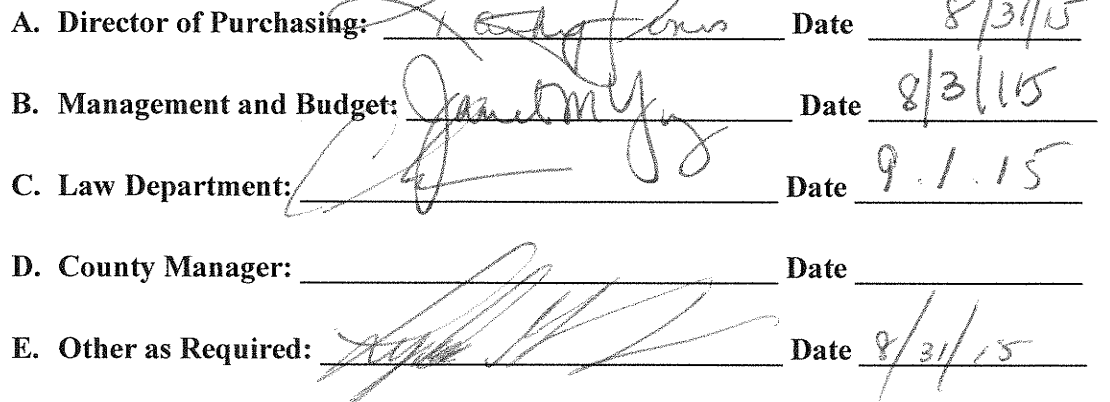 A. Director of Purchasing: Date 8/31/15
B. Management and Budget: Janet M Date 8/31/15
C. Law Department: Date 9.1.15
D. County Manager: Date
E. Other as Required: Date 8/31/15